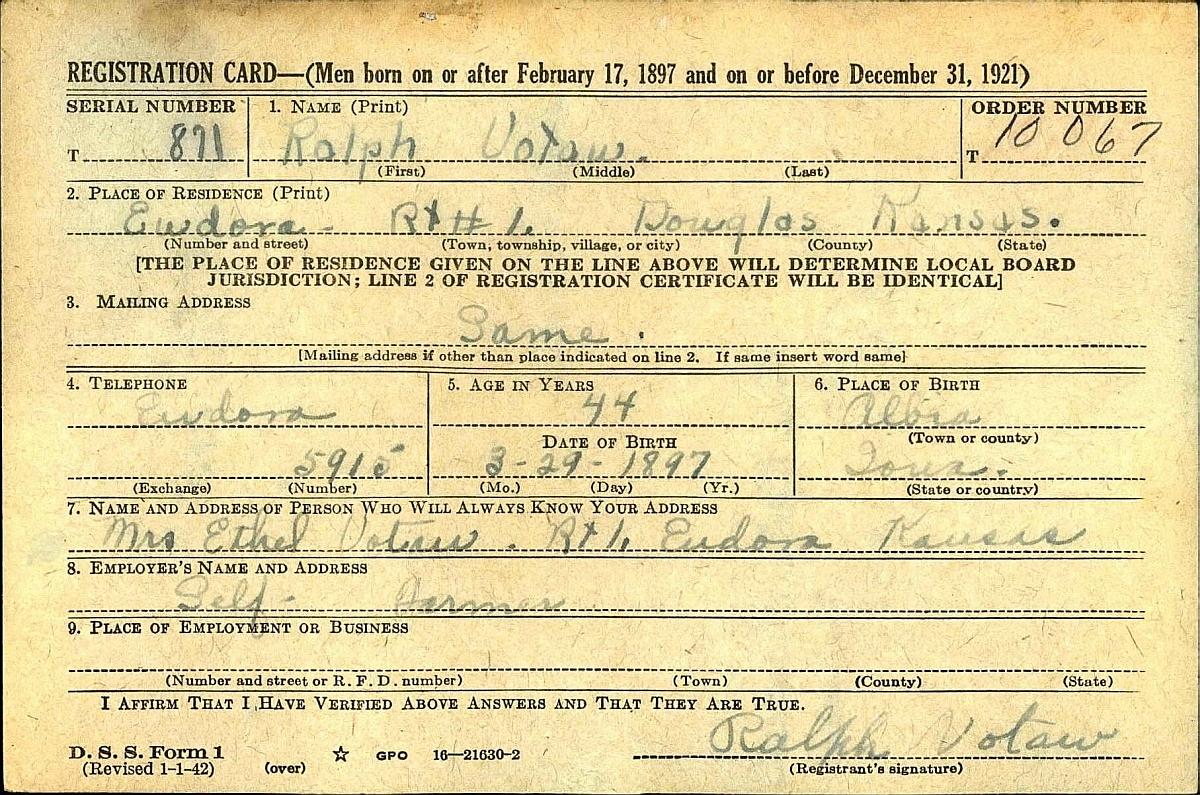 REGISTRATION CARD—(Men born on or after February 17, 1897 and on or before December 31, 1921)
SERIAL NUMBER 1. NAME (Print) ORDER NUMBER
T 871 Ralph Votaw. T 10067
(First) (Middle) (Last)
2. PLACE OF RESIDENCE (Print)
Eudora Rt #1. Douglas Kansas.
(Number and street) (Town, township, village, or city) (County) (State)
[THE PLACE OF RESIDENCE GIVEN ON THE LINE ABOVE WILL DETERMINE LOCAL BOARD
JURISDICTION; LINE 2 OF REGISTRATION CERTIFICATE WILL BE IDENTICAL]
3. MAILING ADDRESS
Same.
[Mailing address if other than place indicated on line 2. If same insert word same]
4. TELEPHONE 5. AGE IN YEARS 6. PLACE OF BIRTH
Eudora 44 Albia
DATE OF BIRTH (Town or county)
5915 3-29-1897 Iowa.
(Exchange) (Number) (Mo.) (Day) (Yr.) (State or country)
7. NAME AND ADDRESS OF PERSON WHO WILL ALWAYS KNOW YOUR ADDRESS
Mrs Ethel Votaw. Rt 1. Eudora Kansas
8. EMPLOYER'S NAME AND ADDRESS
Self- Farmer
9. PLACE OF EMPLOYMENT OR BUSINESS
(Number and street or R. F. D. number) (Town) (County) (State)
I AFFIRM THAT I HAVE VERIFIED ABOVE ANSWERS AND THAT THEY ARE TRUE.
Ralph Votaw
D. S. S. Form 1 ☆ GPO 16—21630-2
(Revised 1-1-42) (over) (Registrant's signature)